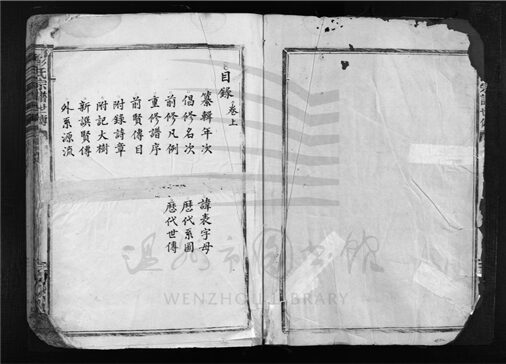 目錄 卷上
纂輯年次
倡修名次
前修凡例
重修譜序
前賢傳目
附錄詩章
附記大樹
新譔賢傳
外系源流
諱表字母
歷代系圖
歷代世傳
溫州市图书館
WENZHOU LIBRARY